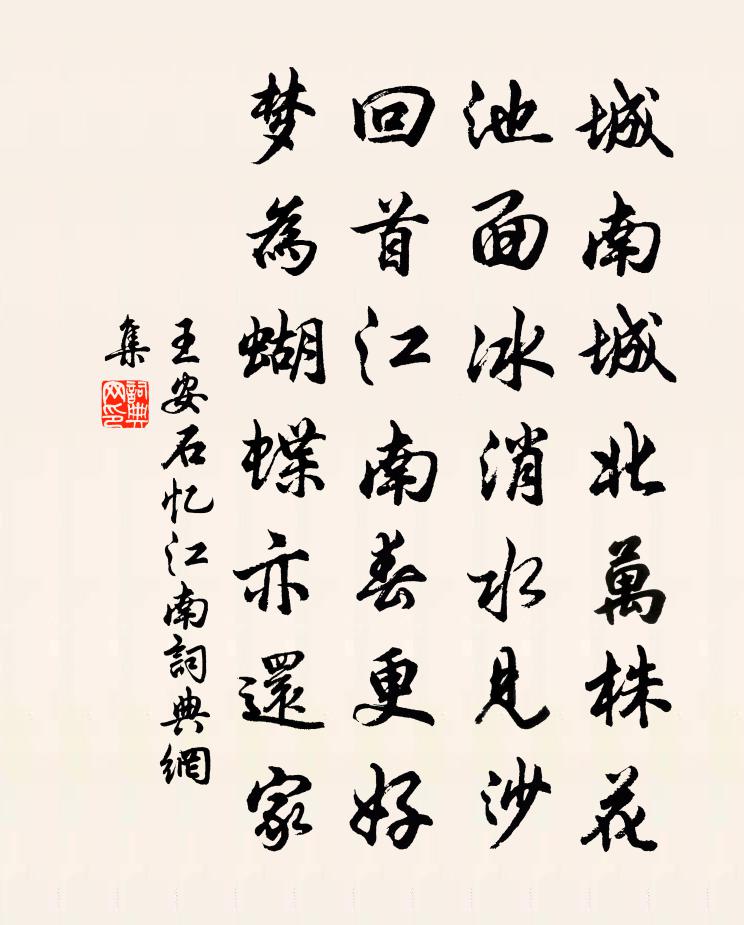 城南城北萬株花
池面冰消水見沙
回首江南春更好
梦為蝴蝶亦還家
王安石忆江南詞典網
集
詞典
网印